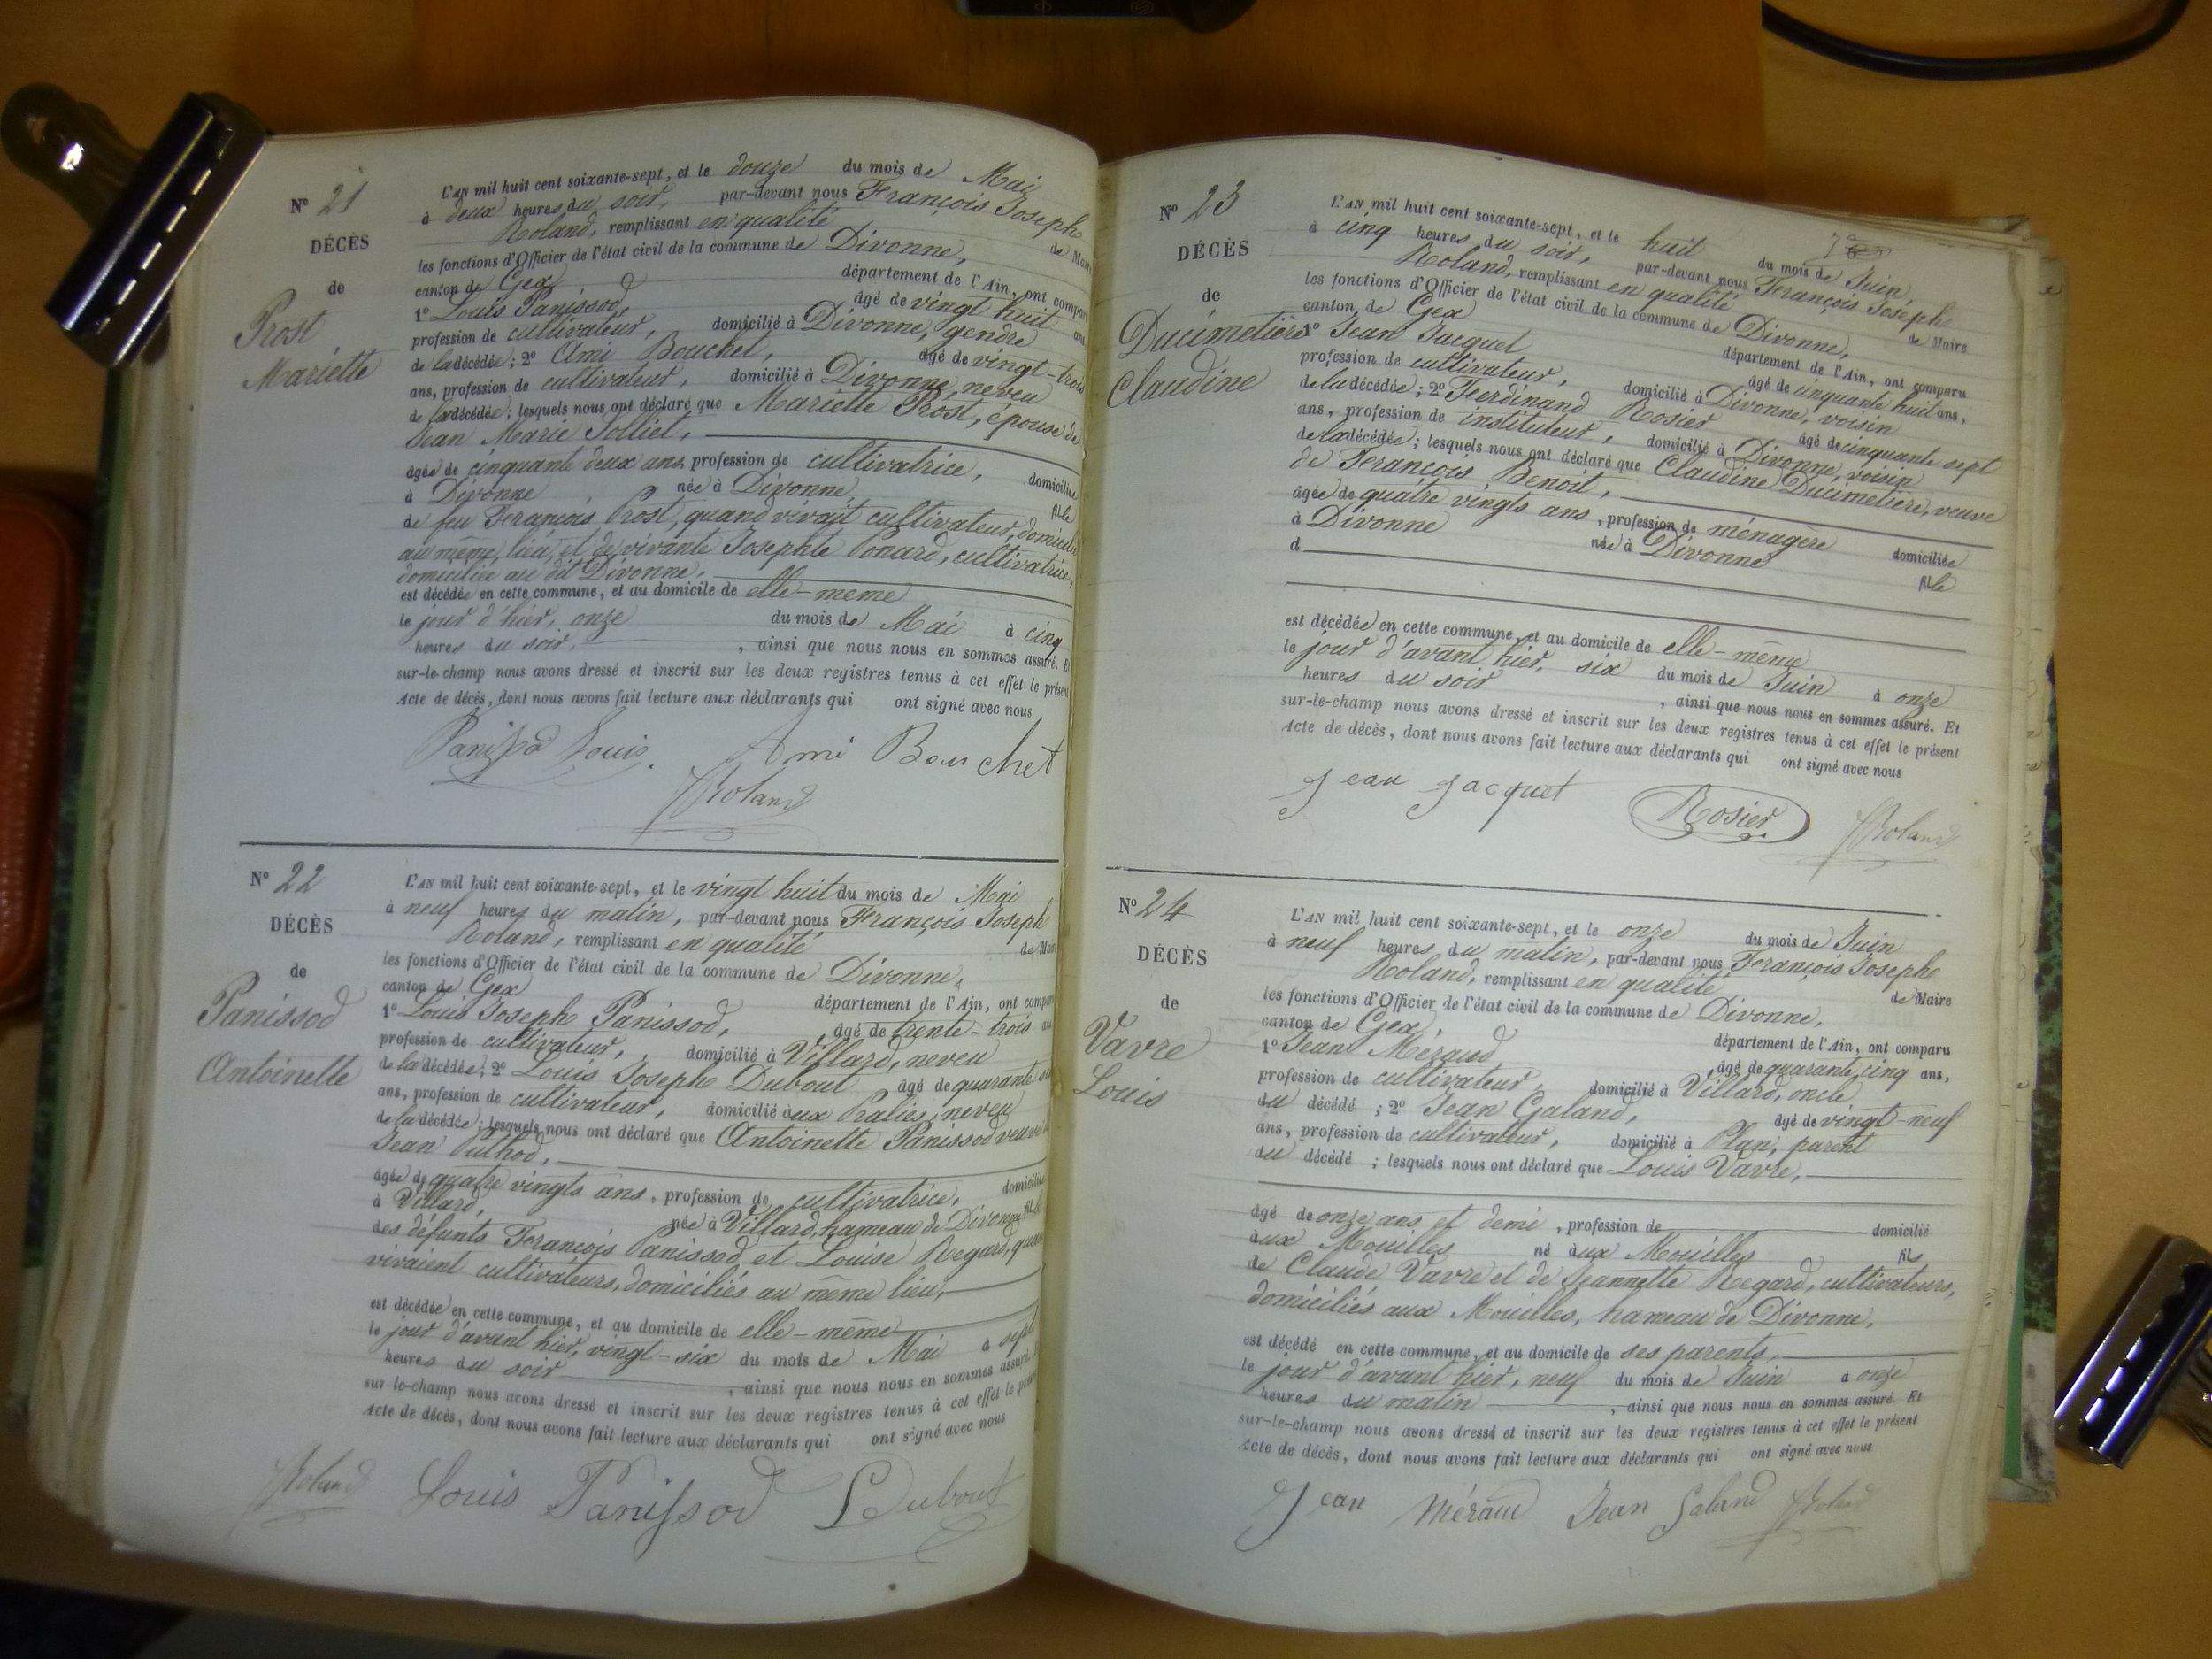 N° 21
DÉCÈS
de
Prost
Mariette
L'AN mil huit cent soixante-sept, et le douze du mois de Mai
à deux heures du soir, par-devant nous François Joseph
Roland, remplissant en qualité de Maire
les fonctions d'Officier de l'état civil de la commune de Divonne,
canton de Gex département de l'Ain, ont comparu
1° Louis Panissod, âgé de vingt huit ans
profession de cultivateur, domicilié à Divonne, gendre
de la décédée; 2° Ami Bouchet, âgé de vingt-trois
ans, profession de cultivateur, domicilié à Divonne, neveu
de la décédée; lesquels nous ont déclaré que Mariette Prost, épouse de
Jean Marie Solliet,
âgée de cinquante deux ans, profession de cultivatrice, domiciliée
à Divonne née à Divonne, fille
de feu François Prost, quand vivait cultivateur, domicilié
au même lieu, et de vivante Josephte Ponard, cultivatrice,
domiciliée au dit Divonne,
est décédée en cette commune, et au domicile de elle-même
le jour d'hier, onze du mois de Mai à cinq
heures du soir, ainsi que nous nous en sommes assuré. Et
sur-le-champ nous avons dressé et inscrit sur les deux registres tenus à cet effet le présent
Acte de décès, dont nous avons fait lecture aux déclarants qui ont signé avec nous
Panissod Louis. Ami Bouchet
Roland
N° 22
DÉCÈS
de
Panissod
Antoinette
L'AN mil huit cent soixante-sept, et le vingt huit du mois de Mai
à neuf heures du matin, par-devant nous François Joseph
Roland, remplissant en qualité de Maire
les fonctions d'Officier de l'état civil de la commune de Divonne,
canton de Gex département de l'Ain, ont comparu
1° Louis Joseph Panissod, âgé de trente-trois ans
profession de cultivateur, domicilié à Villard, neveu
de la décédée; 2° Louis Joseph Dubout âgé de quarante
ans, profession de cultivateur, domicilié aux Pralies, neveu
de la décédée; lesquels nous ont déclaré que Antoinette Panissod veuve
Jean Pulhod,
âgée de quatre vingts ans, profession de cultivatrice, domiciliée
à Villard, née à Villard, hameau de Divonne fille
des défunts François Panissod et Louise Regard, quand
vivaient cultivateurs, domiciliés au même lieu,
est décédée en cette commune, et au domicile de elle-même
le jour d'avant hier, vingt-six du mois de Mai à sept
heures du soir, ainsi que nous nous en sommes assuré. Et
sur-le-champ nous avons dressé et inscrit sur les deux registres tenus à cet effet le présent
Acte de décès, dont nous avons fait lecture aux déclarants qui ont signé avec nous
Roland Louis Panissod LDubout
N° 23
DÉCÈS
de
Ducimetière
Claudine
L'AN mil huit cent soixante-sept, et le huit du mois de Juin
à cinq heures du soir, par-devant nous François Joseph
Roland, remplissant en qualité de Maire
les fonctions d'Officier de l'état civil de la commune de Divonne,
canton de Gex département de l'Ain, ont comparu
1° Jean Jacquet âgé de cinquante huit ans,
profession de cultivateur, domicilié à Divonne, voisin
de la décédée; 2° Ferdinand Rosier âgé de cinquante sept
ans, profession de instituteur, domicilié à Divonne, voisin
de la décédée; lesquels nous ont déclaré que Claudine Ducimetière, veuve
de François Benoit,
âgée de quatre vingts ans, profession de ménagère domiciliée
à Divonne née à Divonne fille
d
est décédée en cette commune, et au domicile de elle-même
le jour d'avant hier, six du mois de Juin à onze
heures du soir, ainsi que nous nous en sommes assuré. Et
sur-le-champ nous avons dressé et inscrit sur les deux registres tenus à cet effet le présent
Acte de décès, dont nous avons fait lecture aux déclarants qui ont signé avec nous
Jean Jacquet Rosier Roland
N° 24
DÉCÈS
de
Vavre
Louis
L'AN mil huit cent soixante-sept, et le onze du mois de Juin
à neuf heures du matin, par-devant nous François Joseph
Roland, remplissant en qualité de Maire
les fonctions d'Officier de l'état civil de la commune de Divonne,
canton de Gex, département de l'Ain, ont comparu
1° Jean Meraud, âgé de quarante cinq ans,
profession de cultivateur, domicilié à Villard, oncle
du décédé; 2° Jean Galand, âgé de vingt-neuf
ans, profession de cultivateur, domicilié à Plan, parent
du décédé; lesquels nous ont déclaré que Louis Vavre,
âgé de onze ans et demi, profession de domicilié
aux Mouilles né aux Mouilles fils
de Claude Vavre et de Jeannette Regard, cultivateurs,
domiciliés aux Mouilles, hameau de Divonne,
est décédé en cette commune, et au domicile de ses parents,
le jour d'avant hier, neuf du mois de Juin à onze
heures du matin, ainsi que nous nous en sommes assuré. Et
sur-le-champ nous avons dressé et inscrit sur les deux registres tenus à cet effet le présent
Acte de décès, dont nous avons fait lecture aux déclarants qui ont signé avec nous
Jean Méraud Jean Galand Roland